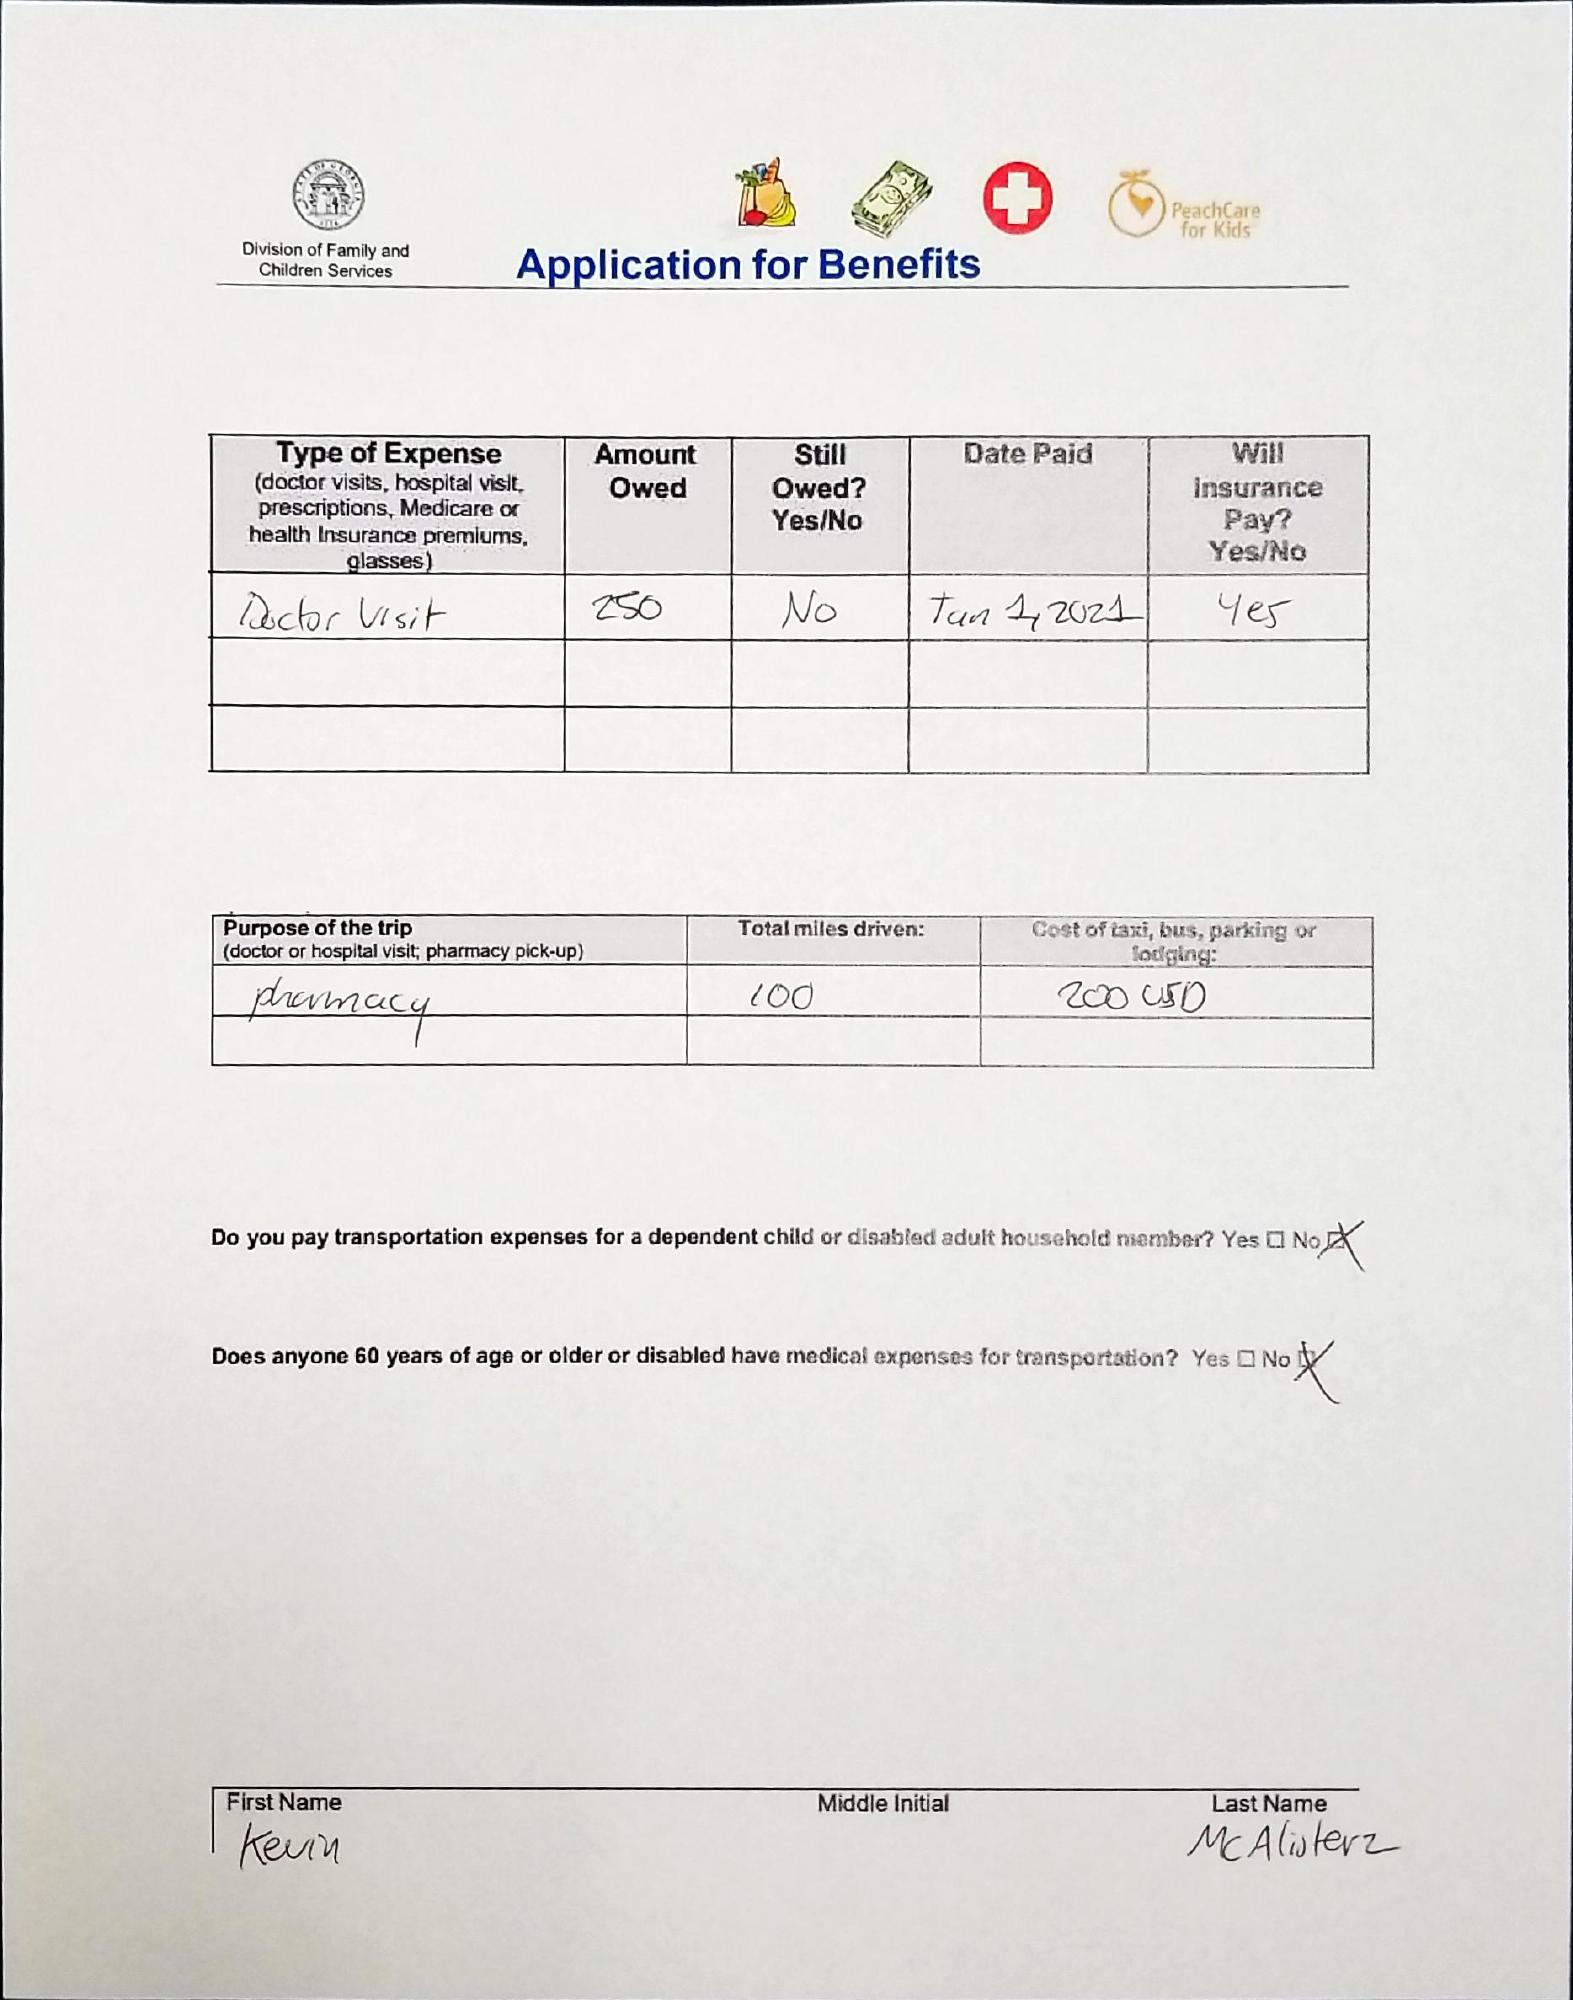 STATE OF GEORGIA
1776
PeachCare
for Kids
Division of Family and
Children Services
Application for Benefits
Type of Expense
(doctor visits, hospital visit,
prescriptions, Medicare or
health Insurance premiums,
glasses)
Amount
Owed
Still
Owed?
Yes/No
Date Paid
Will
insurance
Pay?
Yes/No
Doctor Visit 250 No Jan 1, 2021 Yes
Purpose of the trip
(doctor or hospital visit; pharmacy pick-up)
Total miles driven:
Cost of taxi, bus, parking or
lodging:
pharmacy 100 200 USD
Do you pay transportation expenses for a dependent child or disabled adult household member? Yes ☐ No ☒
Does anyone 60 years of age or older or disabled have medical expenses for transportation? Yes ☐ No ☒
First Name Middle Initial Last Name
Kevin McAlisterz